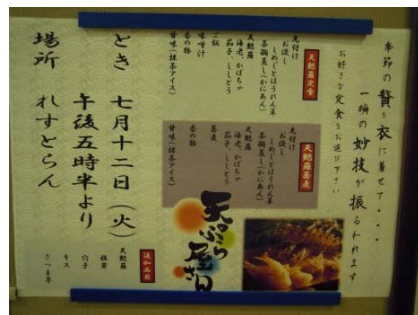 季節の贅を衣に着せて・・・
一瞬の妙技が振るわれます
お好きな定食をお選び下さい
天麩羅定食
先付け
お浸し
しめじとほうれん草
茶碗蒸し(かにあん)
天麩羅
海老、かぼちゃ
茄子、ししとう
ご飯
味噌汁
香の物
甘味(抹茶アイス)
天麩羅蕎麦
先付け
お浸し
しめじとほうれん草
茶碗蒸し(かにあん)
天麩羅
海老、かぼちゃ
茄子、ししとう
蕎麦
香の物
甘味(抹茶アイス)
天ぷら屋さん
とき 七月十二日(火)
午後五時半より
場所 れすとらん
追加品目
天麩羅
穴子
キス
さつま芋